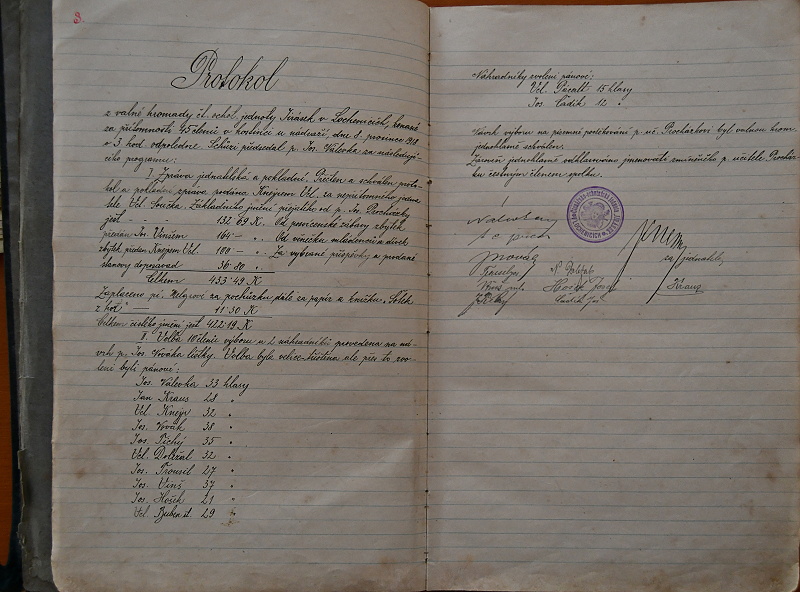 8.
Protokol
z valné hromady čt. ochot. jednoty Jirásek v Lochenicích, konané
za přítomnosti 45 členů v hostinci u nádraží, dne 8. prosince 1918
o 3 hod. odpoledne. Schůzi předsedal p. Jos. Valevka za následují-
cího programu:
I. Zpráva jednatelská a pokladní. Přečten a schválen proto-
kol a pokladní zpráva podána Knejpem Vcl. za nepřítomného jedna-
tele Vcl. Součka. Základního jmění přejatého od p. Jos. Procházky
jest 132·69 K. Od posvícenské zábavy zbytek
předán Jos. Vinšem 164 — „ Od věnečku mládenců a dívek
zbytek předán Knejpem Vcl. 100 — „ Za vybrané příspěvky a prodané
stanovy doposavad 36·80 „
Celkem 433·49 K
Zaplaceno pí. za pochůzku dále za papír a knížku
11·30 K
Celkem čistého jmění jest 422·19 K
II. Volba 10 členů výboru a 2 náhradníků provedena na ná-
vrh p. Jos. Nováka lístky. Volba byla velice tříštěna ale přes to zvo-
leni byli pánové:
Jos. Valevka 33 hlasy
Jan Kraus 28 „
Vcl. Knejp 32 „
Jos. Novák 38 „
Jos. Tichý 35 „
Vcl. Doležal 32 „
Jos. Trousil 27 „
Jos. Vinš 37 „
Jos. Hošek 21 „
Vcl. Buben st. 29 „
Náhradníky zvoleni pánové:
Vcl. 15 hlasy
Jos. Čadík 12 „
Návrh výboru na písemné poděkování p. uč. Procházkovi byl valnou hrom.
jednohlasně schválen.
Zároveň jednohlasně odhlasováno jmenovati zmíněného p. učitele Prochá-
zku čestným členem spolku.
Valevka
t. č. předs.
Novák
za jednatele
Hošek Josef
Kraus
Čadík Jos.